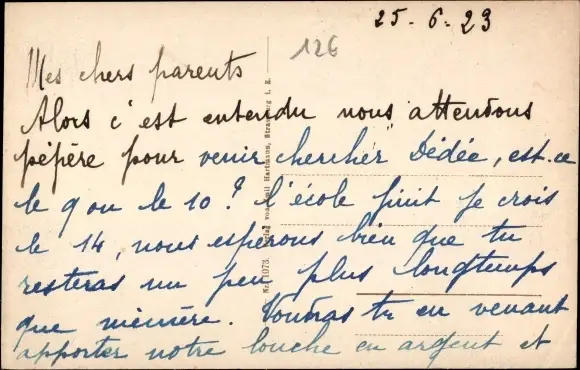 25-6-23
126
Mes chers parents
Alors c'est entendu nous attendons
pépère pour venir chercher Dédée, est-ce
le 9 ou le 10? l'école finit je crois
le 14, nous espérons bien que tu
resteras un peu plus longtemps
que mémère. Voudras tu en venant
apporter notre louche en argent et
No. 1073. Verlag von Emil Hartmann, Strassburg i. E.